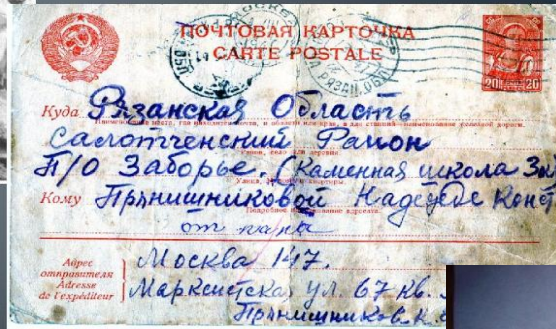 ПОЧТОВАЯ КАРТОЧКА
CARTE POSTALE
20 20
Куда Рязанская Область
Солотченский Район
П/О Заборье. (Каменная школа
Кому Прянишниковой Надежде Конст
от папы
Адрес отправителя
Adresse de l'expéditeur
Москва 147.
Марксистская ул. 67 кв.
Прянишников. К.